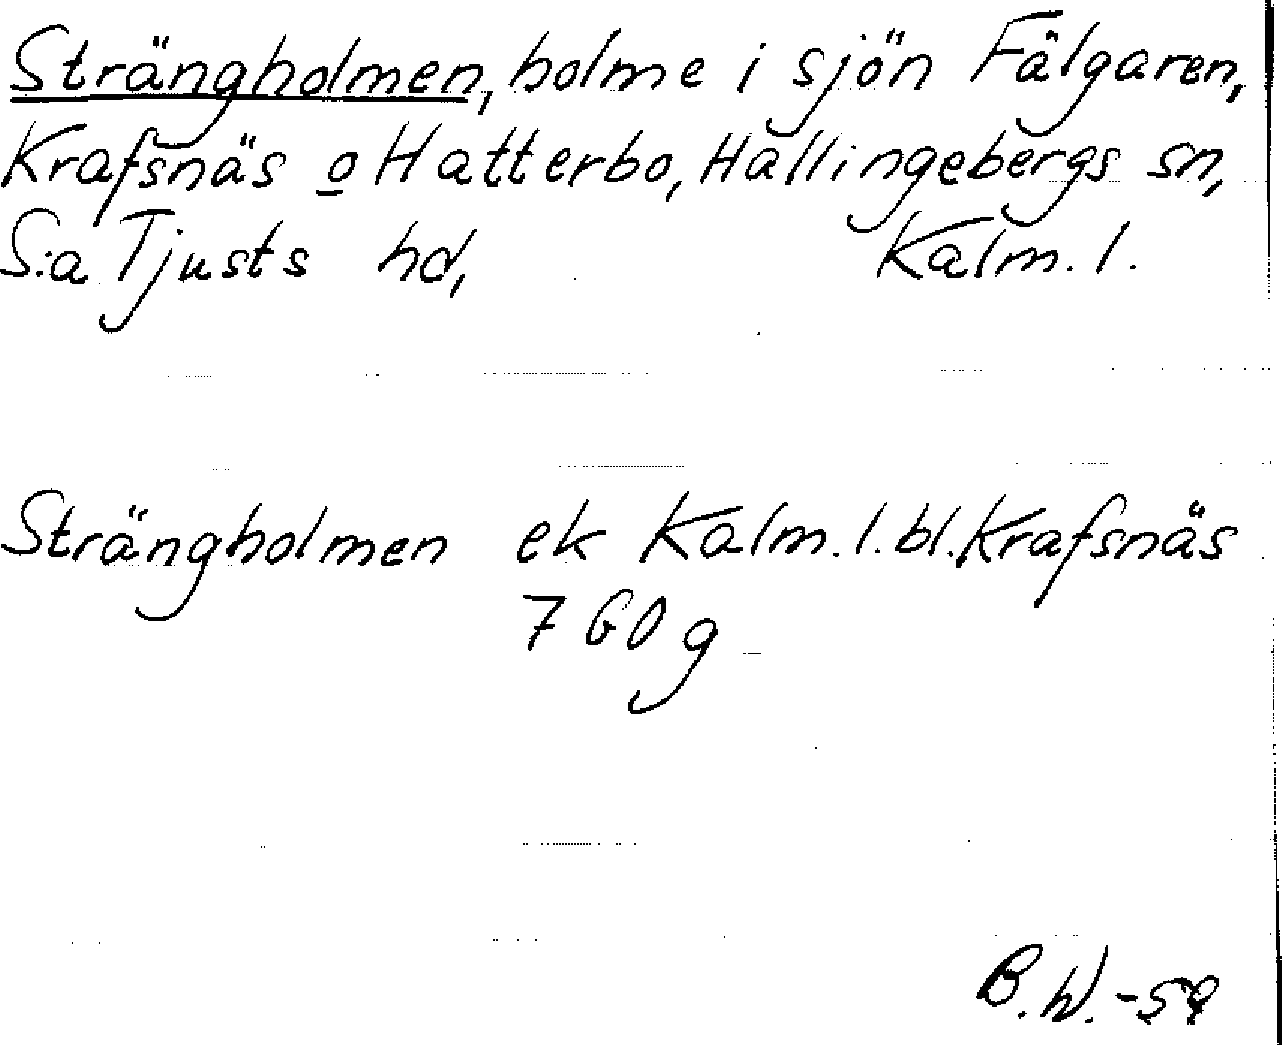 Strängholmen, holme i sjön Fälgaren,
Krafsnäs o Hatterbo, Hallingebergs sn,
S:a Tjusts hd, Kalm. l.
Strängholmen ek Kalm. l. bl. Krafsnäs
7 G0 g
B.W. -59